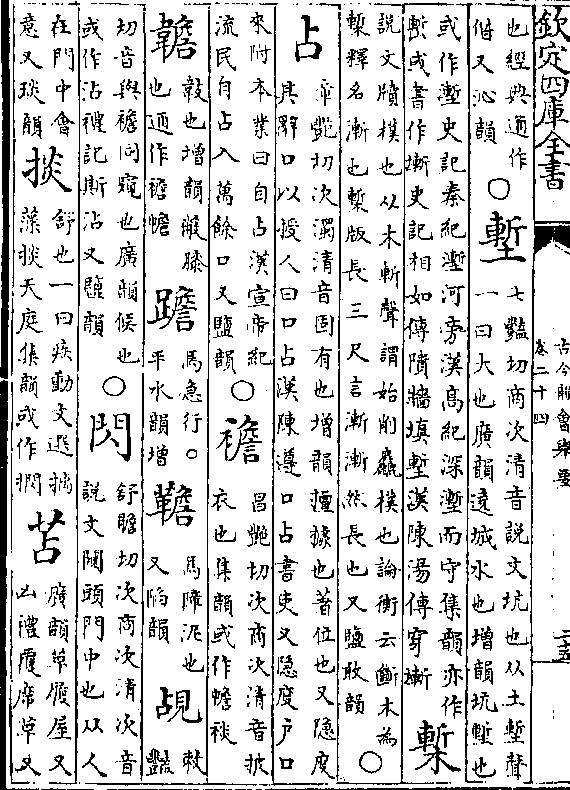 欽定四庫全書
古今韻會舉要
卷二十四
也經典通作
偕又沁韻
○塹
七豔切商次清音說文坑也从土塹聲
一曰大也廣韻遶城水也增韻坑塹也
或作壍史記秦紀壍河旁漢高紀深壍而守集韻亦作
塹或書作嶃史記相如傳隤牆填塹漢陳湯傳穿塹
槧
說文牘樸也从木斬聲謂始削麤樸也論衡云斷木為
槧釋名漸也槧版長三尺言漸漸然長也又鹽敢韻
○
占
章豔切次濁清音固有也增韻擅據也著位也又隱度
其辭口以授人曰口占漢陳遵口占書吏又隱度戶口
來附本業曰自占漢宣帝紀
流民自占入萬餘口又鹽韻
○襜
昌豔切次商次清音披
衣也集韻或作幨裧
韂
鼓也增韻蔽膝
也通作襜幨
馬急行○
平水韻增
馬障泥也
又陷韻
覘
敕
豔
切音與襜同窺也廣韻候也
或作沾禮記斯沾又鹽韻
○閃
舒贍切次商次清次音
說文闚頭門中也从人
在門中會
意又琰韻
掞
舒也一曰疾動文選摛
藻掞天庭集韻或作
苫
廣韻草履屋又
凶禮覆席草又